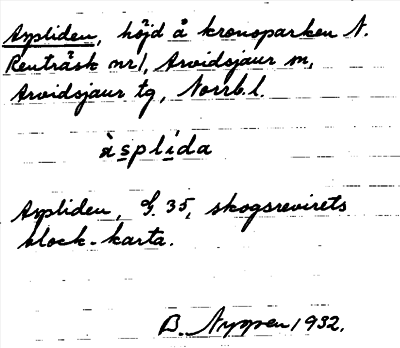 Aspliden, höjd å kronoparken N.
Renträsk nr 1, Arvidsjaur sn,
Arvidsjaur tg, Norrb. l.
àsplída
Aspliden, G. 35, skogsrevirets
block-karta.
B. Nyman 1932.